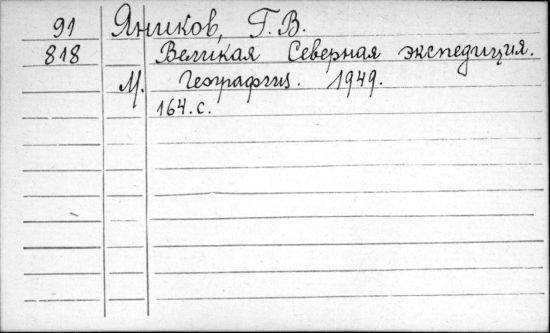 91 Яников, Г. В.
818 Великая Северная экспедиция.
М. Географгиз. 1949.
164. с.